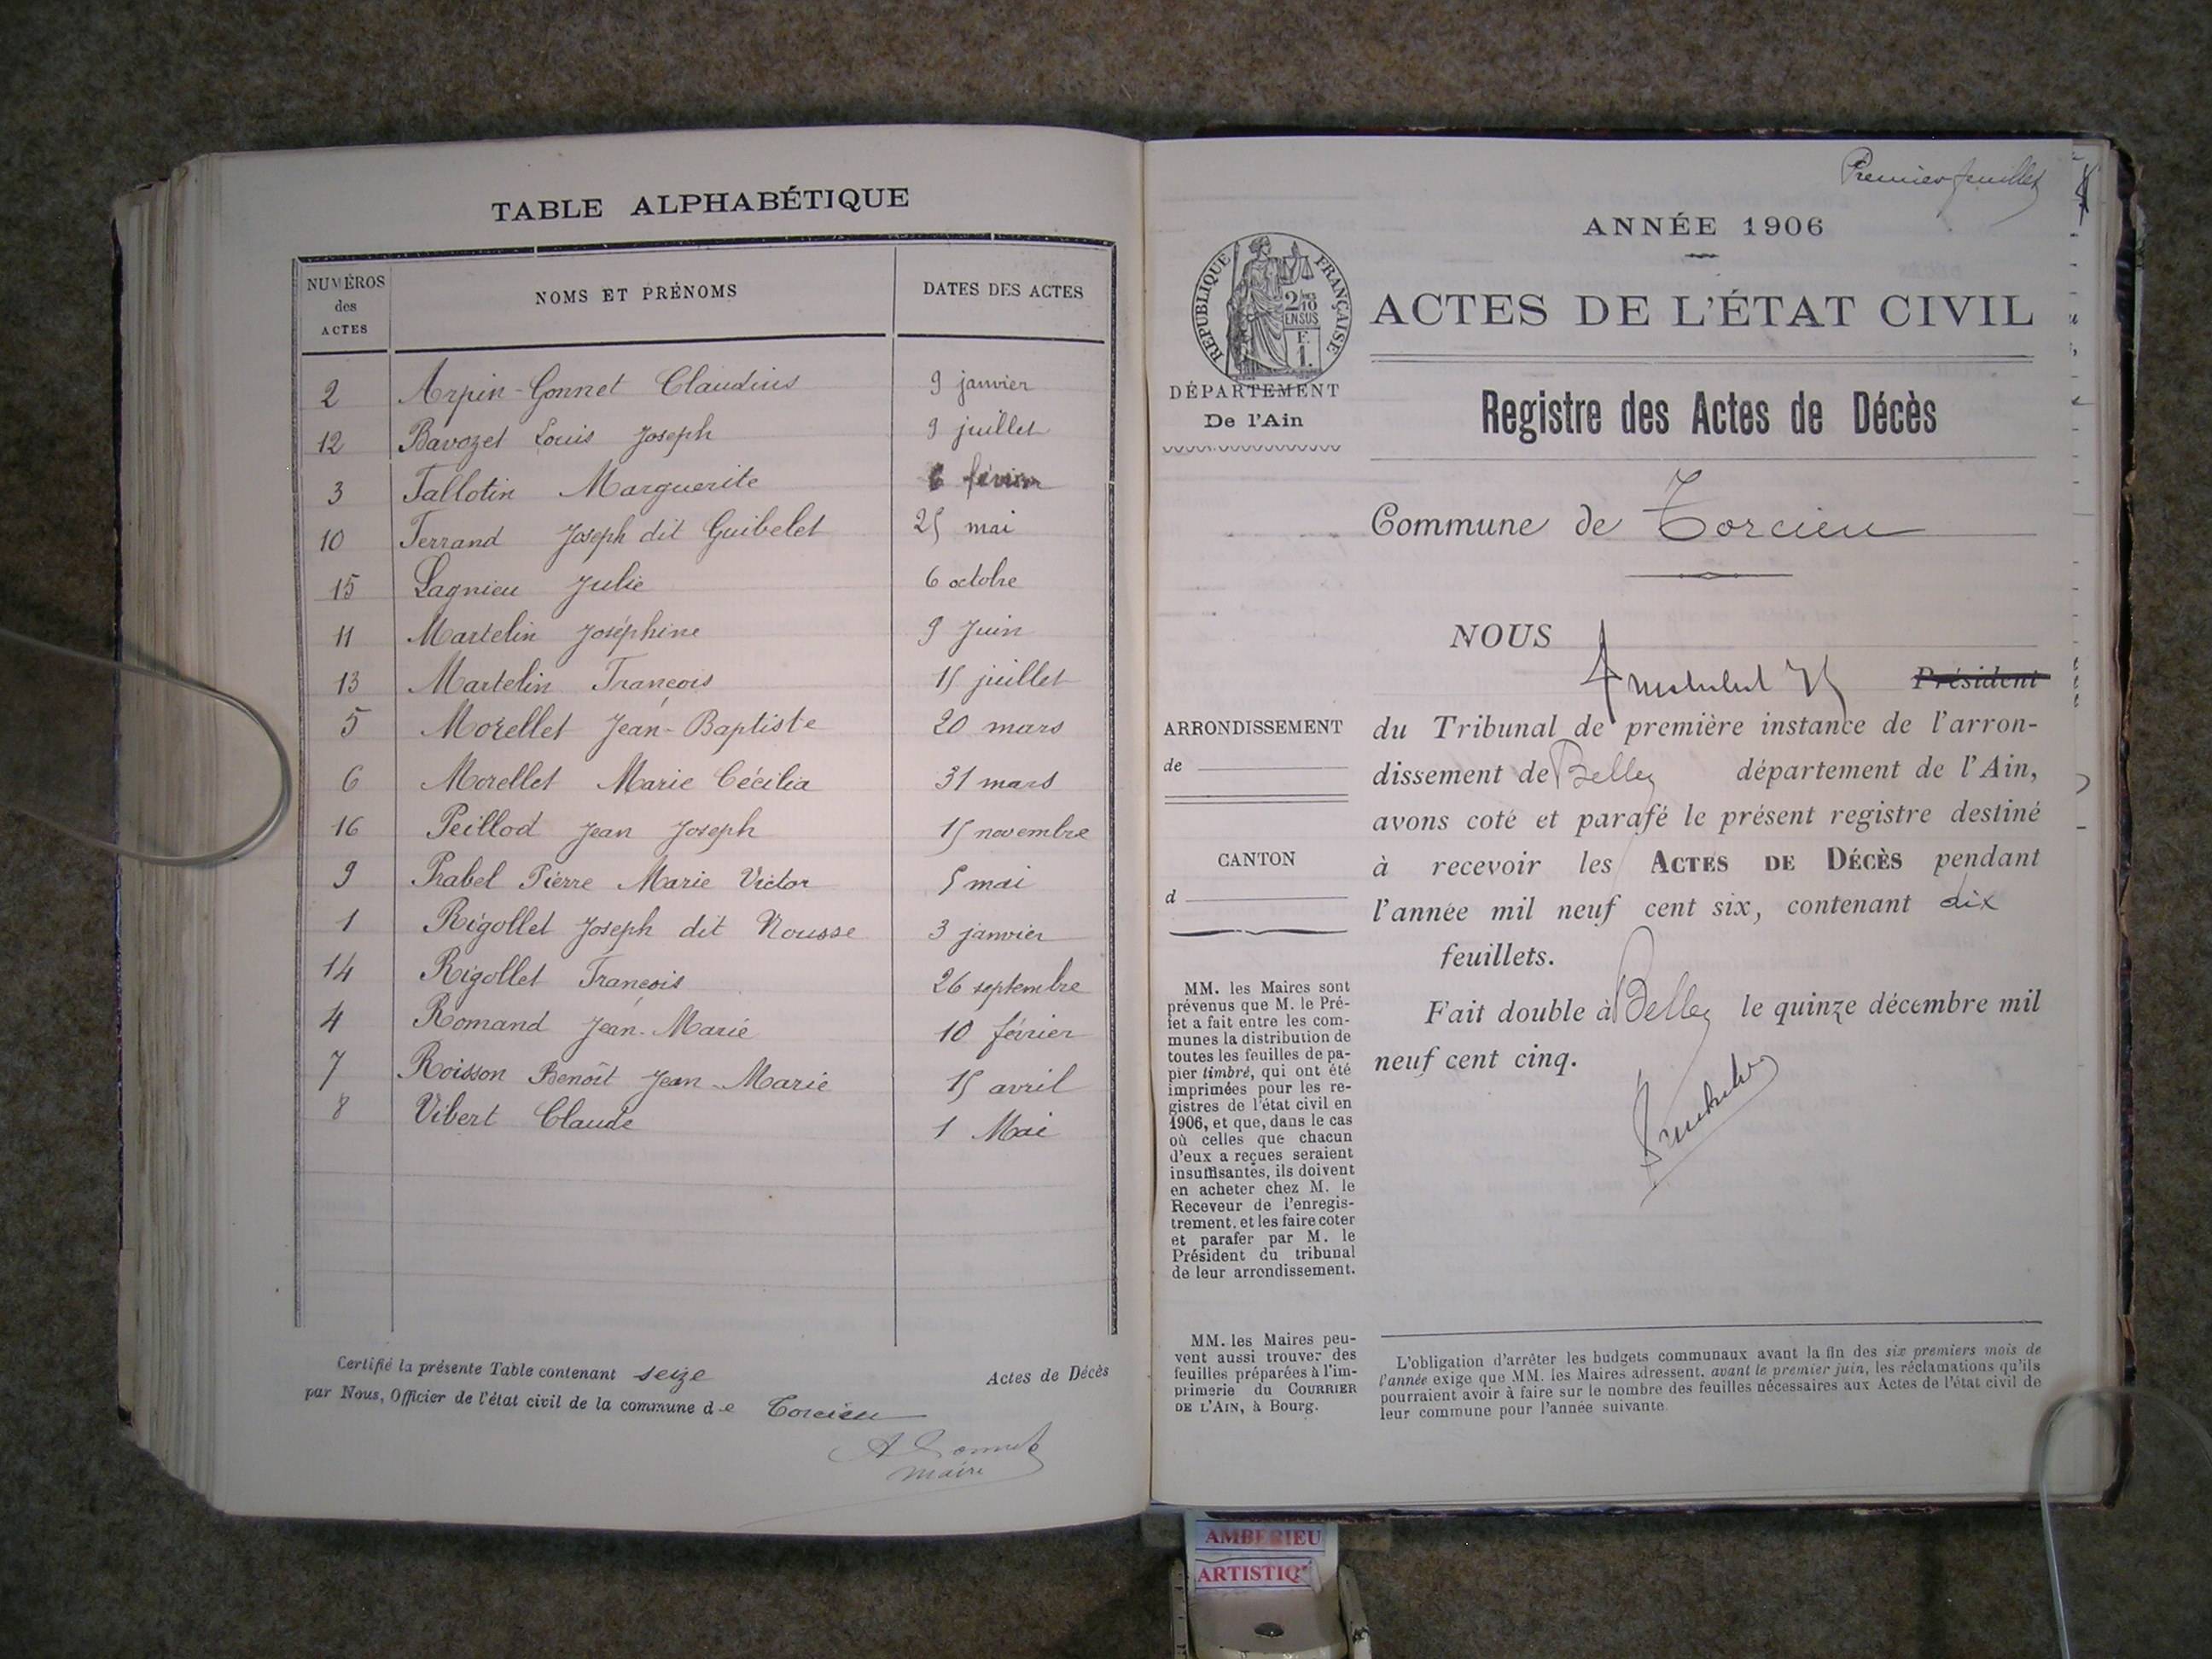 TABLE ALPHABÉTIQUE
NUMÉROS des ACTES
NOMS ET PRÉNOMS
DATES DES ACTES
2 Arpin-Gonnet Claudius 9 janvier
12 Bavozet Louis Joseph 9 juillet
3 Fallotin Marguerite 6 février
10 Ferrand Joseph dit Guibelet 25 mai
15 Lagnieu Julie 6 octobre
11 Martelin Joséphine 9 Juin
13 Martelin François 15 juillet
5 Morellet Jean-Baptiste 20 mars
6 Morellet Marie Cécilia 31 mars
16 Peillod Jean Joseph 15 novembre
9 Prabel Pierre Marie Victor 5 mai
1 Rigollet Joseph dit Nousse 3 janvier
14 Rigollet François 26 septembre
4 Romand Jean-Marie 10 février
7 Roisson Benoît Jean-Marie 15 avril
8 Vibert Claude 1 Mai
Certifié la présente Table contenant seize Actes de Décès
par Nous, Officier de l'état civil de la commune de Torcieu
maire
Premier feuillet
ANNÉE 1906
RÉPUBLIQUE FRANÇAISE
2/10
EN SUS
F.
1.
ACTES DE L'ÉTAT CIVIL
DÉPARTEMENT
De l'Ain
Registre des Actes de Décès
Commune de Torcieu
NOUS
Président
ARRONDISSEMENT
de
du Tribunal de première instance de l'arron-
dissement de Belley département de l'Ain,
avons coté et parafé le présent registre destiné
CANTON
d
à recevoir les ACTES DE DÉCÈS pendant
l'année mil neuf cent six, contenant dix
feuillets.
Fait double à Belley le quinze décembre mil
neuf cent cinq.
MM. les Maires sont
prévenus que M. le Pré-
fet a fait entre les com-
munes la distribution de
toutes les feuilles de pa-
pier timbré, qui ont été
imprimées pour les re-
gistres de l'état civil en
1906, et que, dans le cas
où celles que chacun
d'eux a reçues seraient
insuffisantes, ils doivent
en acheter chez M. le
Receveur de l'enregis-
trement, et les faire coter
et parafer par M. le
Président du tribunal
de leur arrondissement.
MM. les Maires peu-
vent aussi trouver des
feuilles préparées à l'im-
primerie du COURRIER
DE L'AIN, à Bourg.
L'obligation d'arrêter les budgets communaux avant la fin des six premiers mois de
l'année exige que MM. les Maires adressent, avant le premier juin, les réclamations qu'ils
pourraient avoir à faire sur le nombre des feuilles nécessaires aux Actes de l'état civil de
leur commune pour l'année suivante.
AMBERIEU
ARTISTIQ